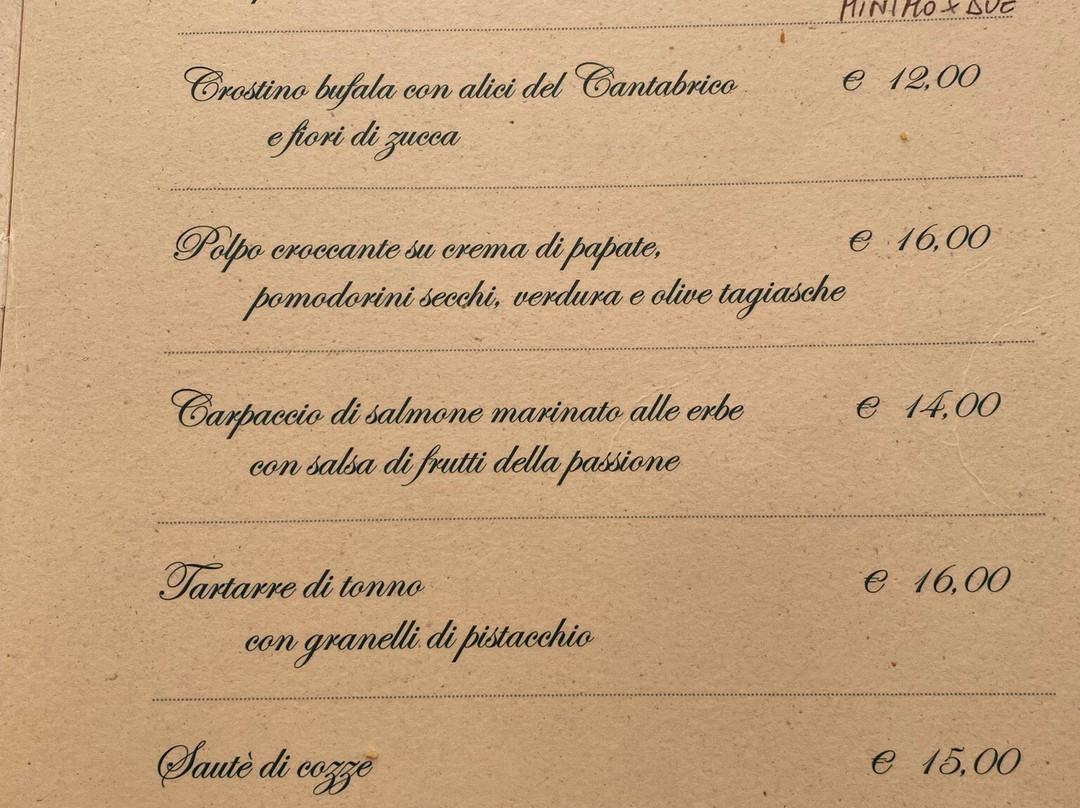 MINIMO x DUE
Crostino bufala con alici del Cantabrico € 12,00
e fiori di zucca
Polpo croccante su crema di papate, € 16,00
pomodorini secchi, verdura e olive tagiasche
Carpaccio di salmone marinato alle erbe € 14,00
con salsa di frutti della passione
Tartarre di tonno € 16,00
con granelli di pistacchio
Sautè di cozze € 15,00